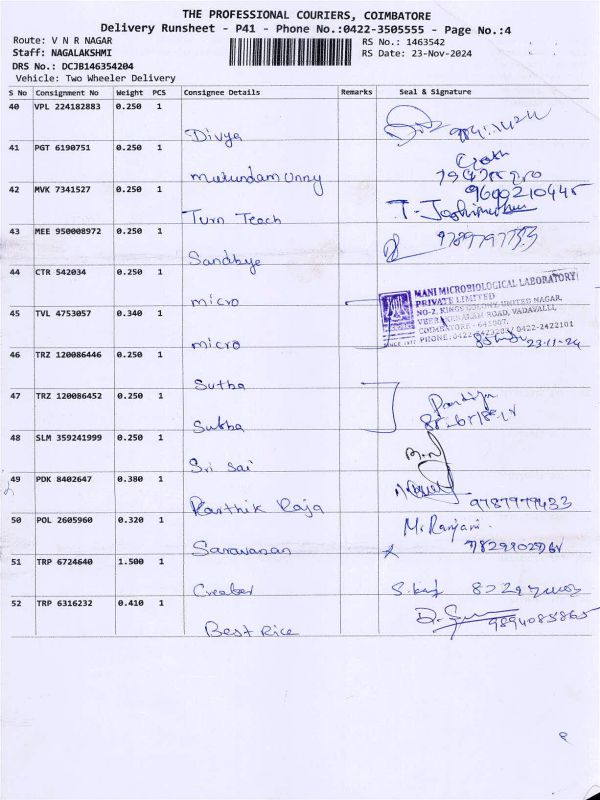 THE PROFESSIONAL COURIERS, COIMBATORE
Delivery Runsheet - P41 - Phone No.:0422-3505555 - Page No.:4
Route: V N R NAGAR
RS No.: 1463542
Staff: NAGALAKSHMI
RS Date: 23-Nov-2024
DRS No.: DCJB146354204
Vehicle: Two Wheeler Delivery
S No Consignment No Weight PCS Consignee Details Remarks Seal & Signature
40 VPL 224182883 0.250 1
Divya
41 PGT 6190751 0.250 1
Mukundam Unny
42 MVK 7341527 0.250 1
9600210445
Turn Teach
43 MEE 950008972 0.250 1
9789797733
Sandbye
44 CTR 542034 0.250 1
micro
MANI MICROBIOLOGICAL LABORATORY
PRIVATE LIMITED
NO-2, KINGS COLONY, UNITED NAGAR,
VEERAKERALAM ROAD, VADAVALLI,
COIMBATORE - 641007.
PHONE: 0422-2423203/ 0422-2422101
SINCE 1977
23-11-24
45 TVL 4753057 0.340 1
micro
46 TRZ 120086446 0.250 1
Sutba
47 TRZ 120086452 0.250 1
Sukba
48 SLM 359241999 0.250 1
Sri Sai
49 PDK 8402647 0.380 1
Karthik Raja
9787977433
50 POL 2605960 0.320 1
M. Ranjani.
Saravanan
51 TRP 6724640 1.500 1
Creater
52 TRP 6316232 0.410 1
9894085865
Best Rice